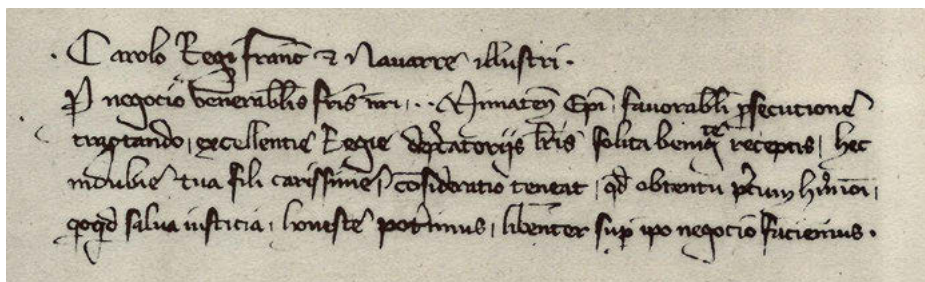 Carolo Regi Franc et Navarre illustri.
P negocio venerabilis fris nri, .. Epi, favorabili psecutione
excellentie Regie dep̃catoriis lris solita benigte receptis, hec
indubie tua fili carissime consideratio teneat, qd obtentu pcum
qoqd salva iusticia, honeste poterimus, libenter sup ipo negocio faciemus.